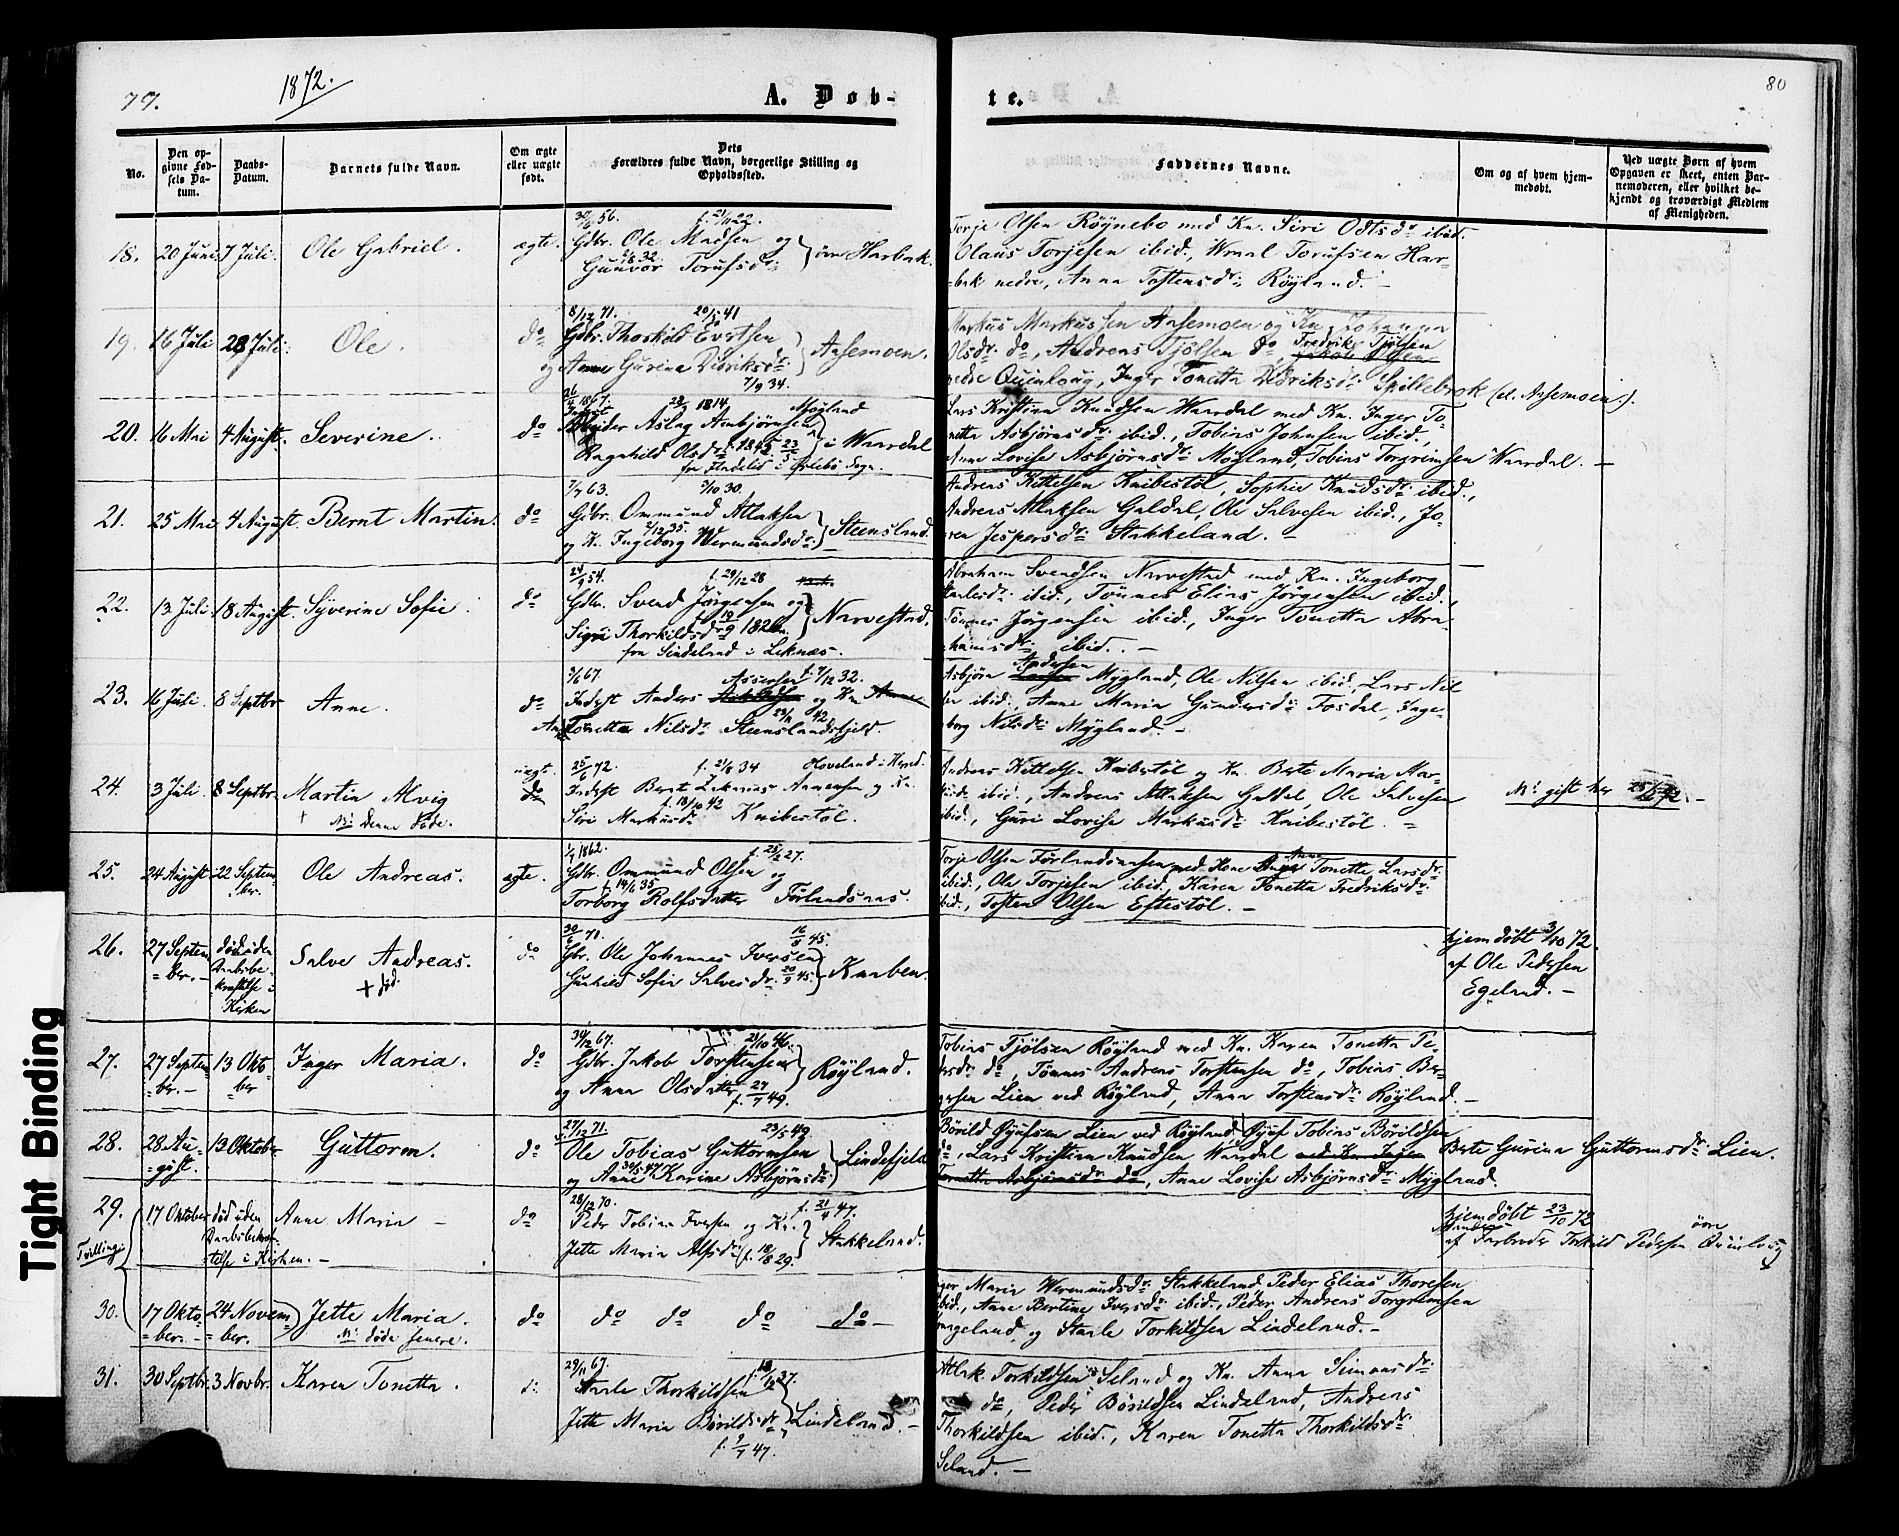 79.
1872.
A. Døb-
te.
80
No.
Den op-
givne Fød-
sels Da-
tum.
Daabs-
Datum.
Barnets fulde Navn.
Om ægte
eller uægte
født.
Dets
Forældres fulde Navn, borgerlige Stilling og
Opholdssted.
Faddernes Navne.
Om og af hvem hjem-
medøbt.
Ved uægte Børn af hvem
Opgaven er skeet, enten Bar-
nemoderen, eller hvilket be-
kjendt og troværdigt Medlem
af Menigheden.
18. 20 Juni 7 Juli. Ole Gabriel. ægte.
Gdbr. Ole Madsen og
Gunvor Torufsdr. øvre Harbak.
Torje Olsen Röynebo med Kn. Siri Odtsdr. ibid.
Olaus Torjesen ibid., Wraal Torufsen Har-
bak nedre, Anna Tostensdr. Röyland. -
19. 16 Juli 28 Juli. Ole. do
8/12 71. 20/5 41
Gdbr. Thorkild Evertsen
og Anne Gurina Didriksdr. Aasemoen.
7/9 34.
Markus Markussen Aasemoen og Kn. Johanna
Olsdr. do, Andreas Tjölsen do, Fredrik Tjölsen
nedre Quinlaug, Inger Tonetta Didriksdr. Spillebrok (el. Aasemoen).
20. 16 Mai 4 August. Severine. do
26/4 1867. 1814 Mögland
Aslag Asbjörnsen
Ragnhild Olsdr. 1845 23/5 i Waardal
fra Øvlebö Sogn.
Lars Kristian Knudsen Waardal med Kn. Inger To-
netta Asbjörnsdr. ibid., Tobias Johnsen ibid.,
Anne Lovise Asbjörnsdr. Mögland, Tobias Torgrimsen Waardal. -
21. 25 Mai 4 August. Bernt Martin. do
7/7 63. 5/10 30.
Gdbr. Ommund Atlaksen
2/12 35.
og K. Ingeborg Wermundsdr. Steensland.
Andreas Kittelsen Knibestöl, Sophie Knudsdr. ibid.,
Andreas Atlaksen Galdal, Ole Salvesen ibid., Jo-
ren Jespersdr. Stakkeland. -
22. 13 Juli 18 August. Syverine Sofie. do
24/9 54. f. 29/12 28
Gdbr. Svend Jörgensen og
Sigri Thorkildsdr. 19/9 1826 Narvestad.
fra Lindeland i Bakke.
Abraham Svendsen Narvestad med Kn. Ingeborg
ibid., Tönnes Elias Jörgensen ibid.,
Tönnes Jörgensen ibid., Inger Tonetta Abra-
hamsdr. ibid. -
23. 16 Juli. 8 Septbr. Anne. do
7/6 67. Assersen f. 7/12 32.
Inderst Anders og Kn.
Tonetta Nilsdr. 23/11 42 Steenslandsfjeld.
Asbjörn Andersen Mygland, Ole Nilsen ibid., Lars Nil
sen ibid., Anne Maria Gundersdr. Fosdal, Inge-
borg Nilsdr. Mygland. -
24. 3 Juli. 8 Septbr. Martin Alvig uægte.
+ NB: denne døde.
25/6 72. f. 21/8 34 Hoveland i Hered.
Inderst Berent Aanensen og Kn
f. 18/10 42
Siri Markusdr. Knibestöl.
Andreas Kittelsen Knibestöl og Kn. Berte Maria Mar-
kusdr. ibid., Andreas Atlaksen Galdal, Ole Salvesen
ibid., Guri Lovise Markusdr. Knibestöl. -
NB: gift her 25/6 72. -
25. 24 August 22 Septem-
ber. Ole Andreas. ægte.
1/7 1862. f. 25/2 27.
Gdbr. Ommund Olsen og
f. 19/6 35
Torborg Rolfsdatter Förlandsaas.
Torje Olsen Förlandsaasen med Kone Anne Tonette Larsdr.
ibid., Ole Torjesen ibid., Karen Tonetta Fredriksdr.
ibid., Tosten Olsen Eftestöl. -
26. 27 Septem-
ber. - død uden
Daabsbe-
kræftelse i
Kirken Salve Andreas. do
+ død.
30/6 71. 16/8 45.
Gbr. Ole Johannes Iversen
Gunhild Sofia Salvesdr. 20/9 45. Knaben.
hjemdöbt 3/10 72.
af Ole Pedersen
Egeland. -
27. 27 Septem-
ber. - 13 Okto-
ber Inger Maria. do
30/12 67. 21/10 46.
Gdbr. Jakob Torstensen
og Anna Olsdatter Röyland.
f. 27/7 49.
Tobias Tjölsen Röyland med Kn. Karen Tonetta Pe-
dersdr. do, Tönnes Andreas Torstensen do, Tobias Ber-
gersen Lien ved Röyland, Anna Torstensdr. Röyland. -
28. 28 Au-
gust. 13 Oktober Guttorm. do
27/12 71. 23/5 49
Ole Tobias Guttormsen
og Anne Karine Asbjörnsdr. Lindefjeld
30/5 47
Börild Öjufsen Lien ved Röyland, Öjuf Tobias Börildsen
do, Lars Kristian Knudsen Wardal med Kn. Inger
Tonetta Asbjörnsdr. do, Anne Lovise Asbjörnsdr. Mygland.
Berte Gurina Guttormsdr. Lien.
29. 17 Oktober død uden
Daabsbekræf-
telse i Kirken. - Anne Maria - do
Tvilling:
28/12 70. f. 21/4 47.
Peder Tobias Iversen og Kn.
Jette Maria Alfsdr. f. 18/8 29. Stakkeland.
hjemdöbt 23/10 72
af Farbroder Torkild Pedersen øvre Quinlaug
30. 17 Okto-
ber. - 24 Novem-
ber. Jette Maria. do do do do do -
NB: døde senere.
Maria Wermundsdr. Stakkeland, Peder Elias Thoresen
ibid., Anne Bertine Iversdr. ibid., Peder Andreas Torgrimsen
og Staale Torkildsen Lindeland. -
31. 30 Septbr. 3 Novbr. Karen Tonetta.
29/11 67. 18/12 27.
Staale Thorkildsen
Jette Maria Börildsdr. Lindeland. -
f. 9/7 47.
Atlak Torkildsen Seland og Kn. Anna Simonsdr.
do, Peder Börildsen Lindeland, Andreas
Thorkildsen ibid., Karen Tonetta Thorkildsdr.
Seland. -
Tight Binding